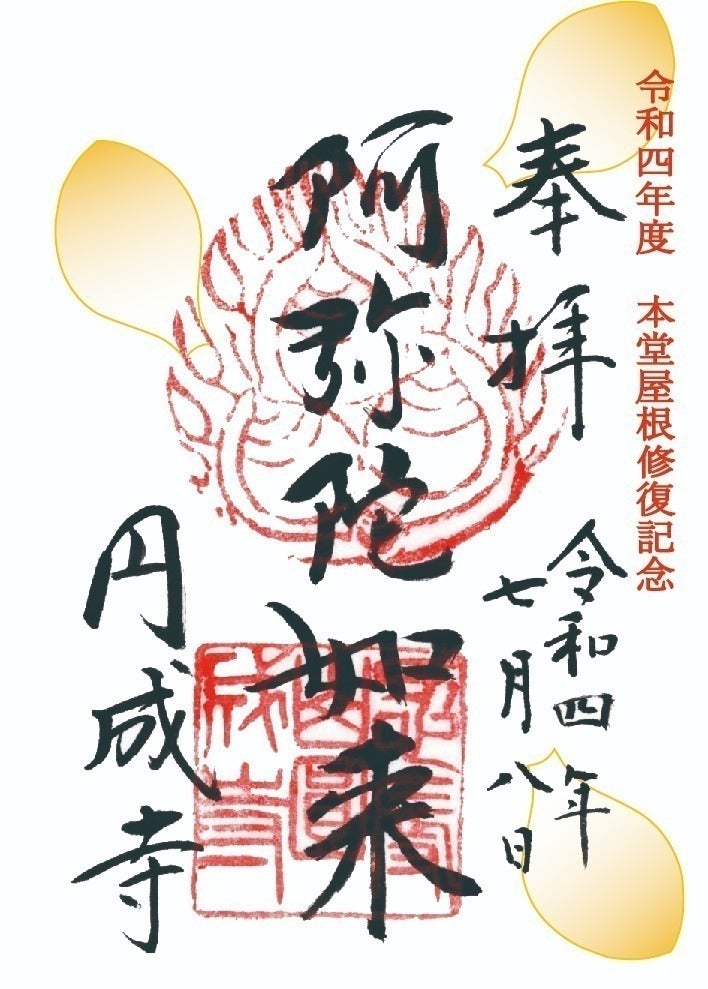 令和四年度　本堂屋根修復記念
奉拝
令和四年
七月八日
阿弥陀如来
円成寺